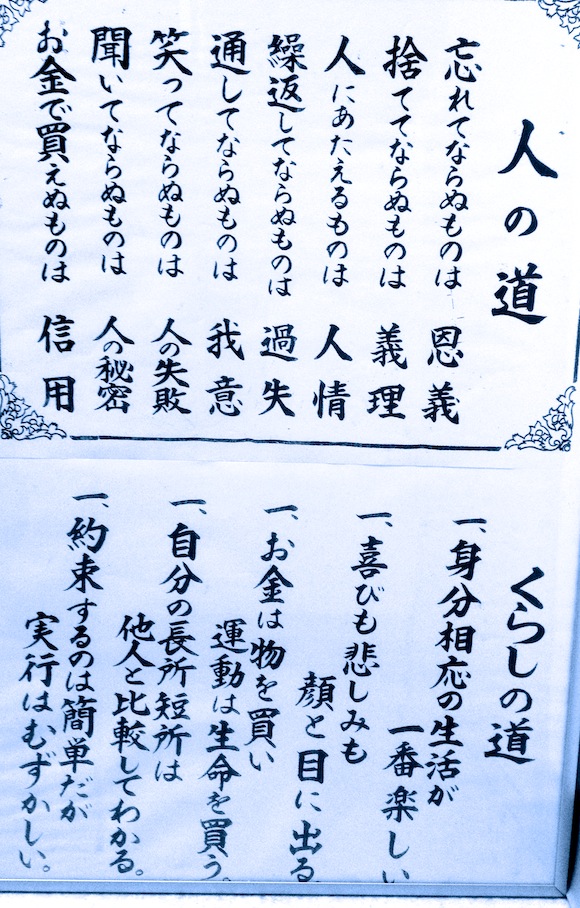 人の道
忘れてならぬものは 恩義
捨ててならぬものは 義理
人にあたえるものは 人情
繰返してならぬものは 過失
通してならぬものは 我意
笑ってならぬものは 人の失敗
聞いてならぬものは 人の秘密
お金で買えぬものは 信用
くらしの道
一、身分相応の生活が
一番楽しい
一、喜びも悲しみも
顔と目に出る
一、お金は物を買い
運動は生命を買う。
一、自分の長所短所は
他人と比較してわかる。
一、約束するのは簡単だが
実行はむずかしい。